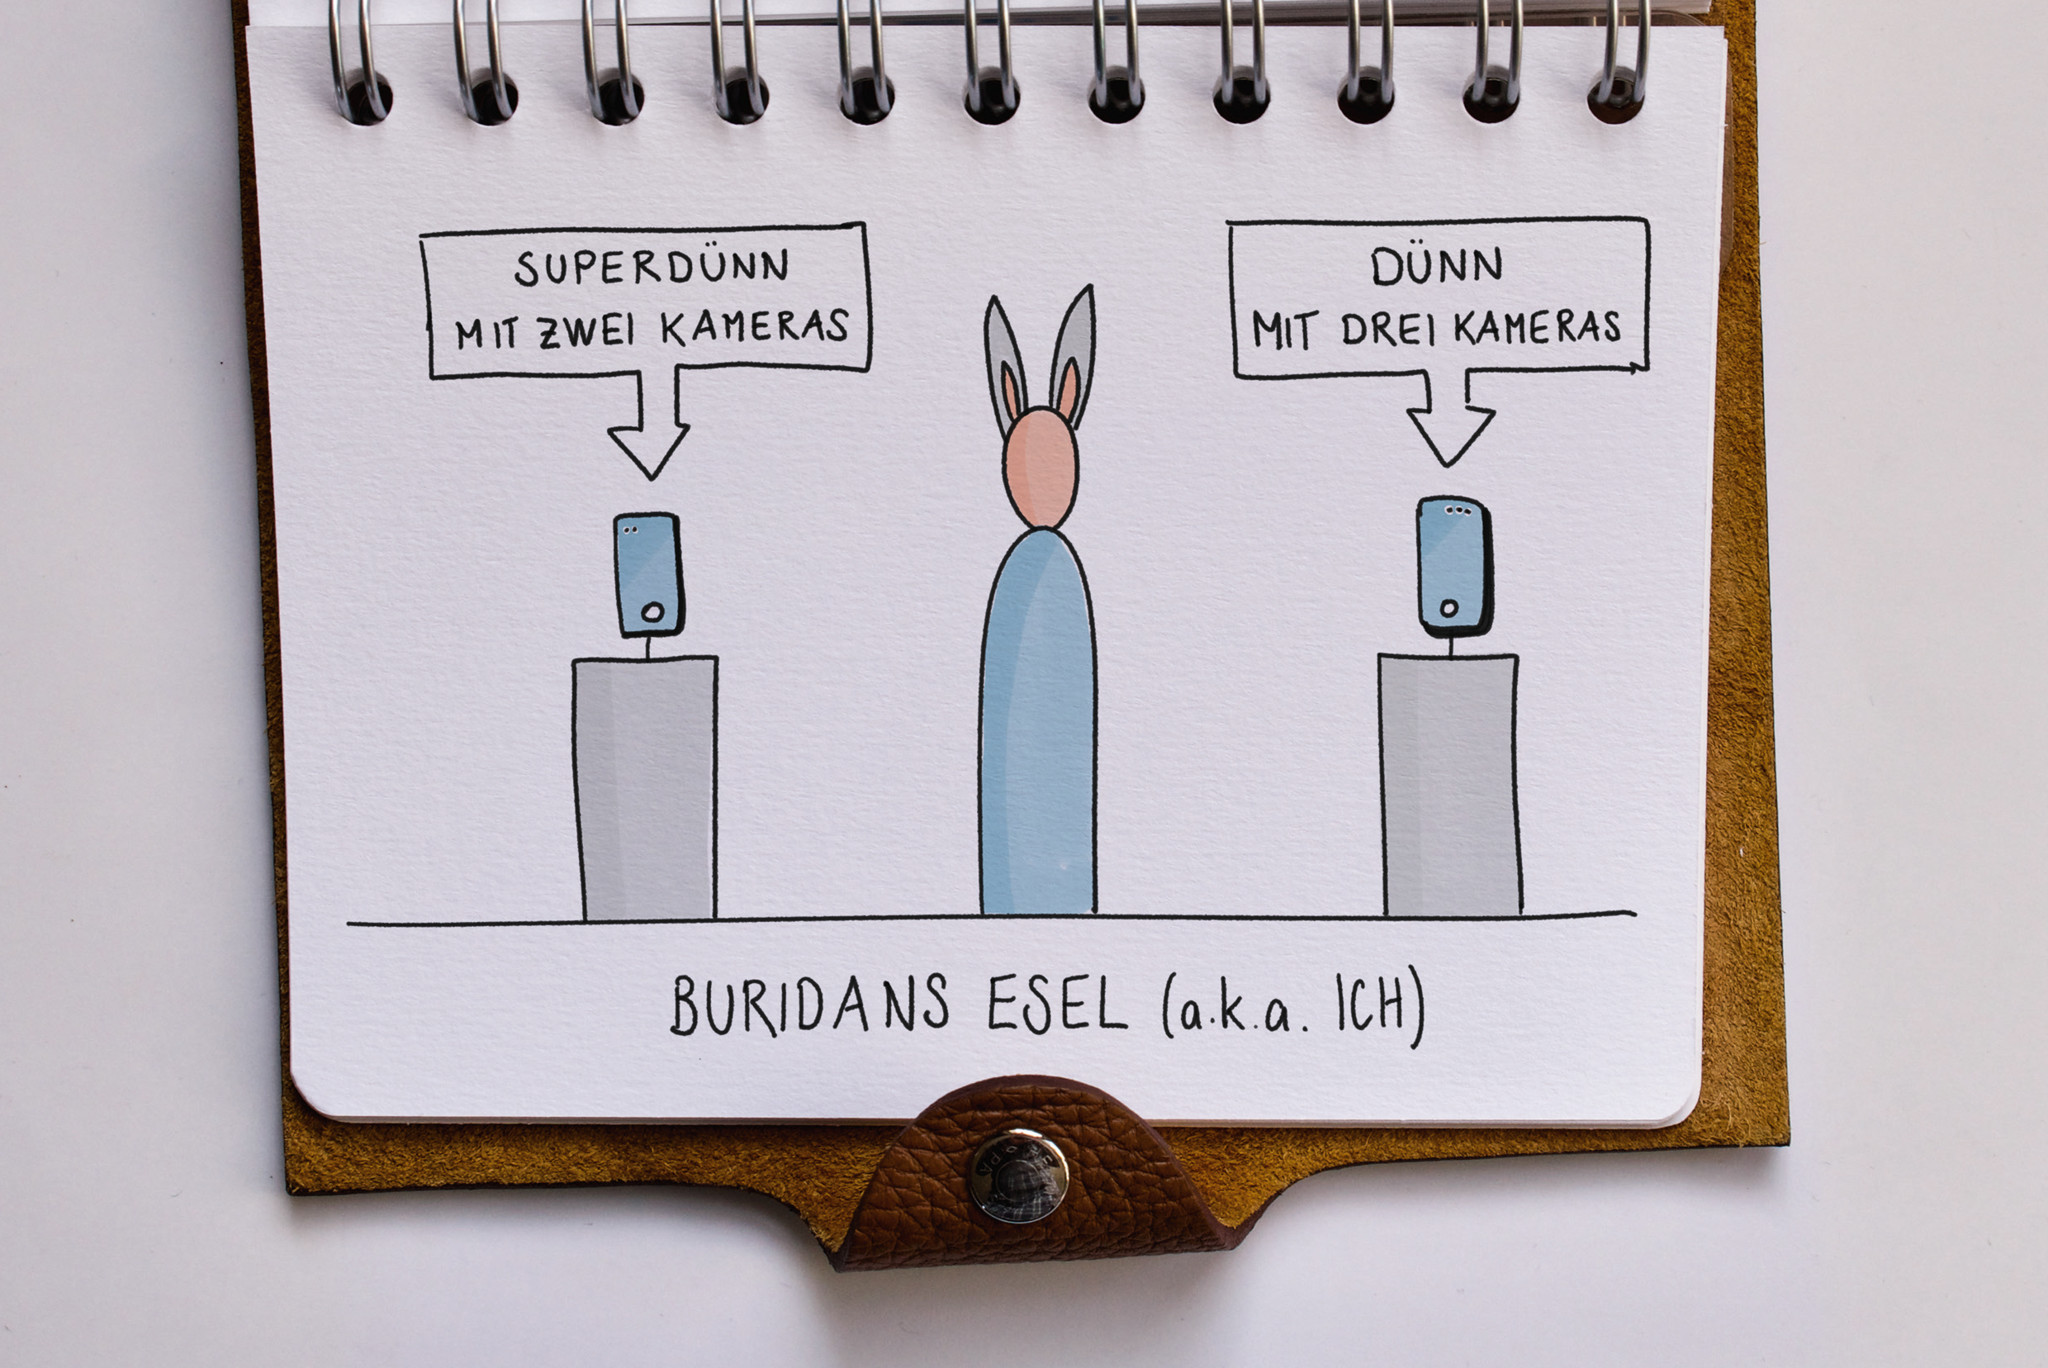 SUPERDÜNN
MIT ZWEI KAMERAS
DÜNN
MIT DREI KAMERAS
BURIDANS ESEL (a.k.a. ICH)